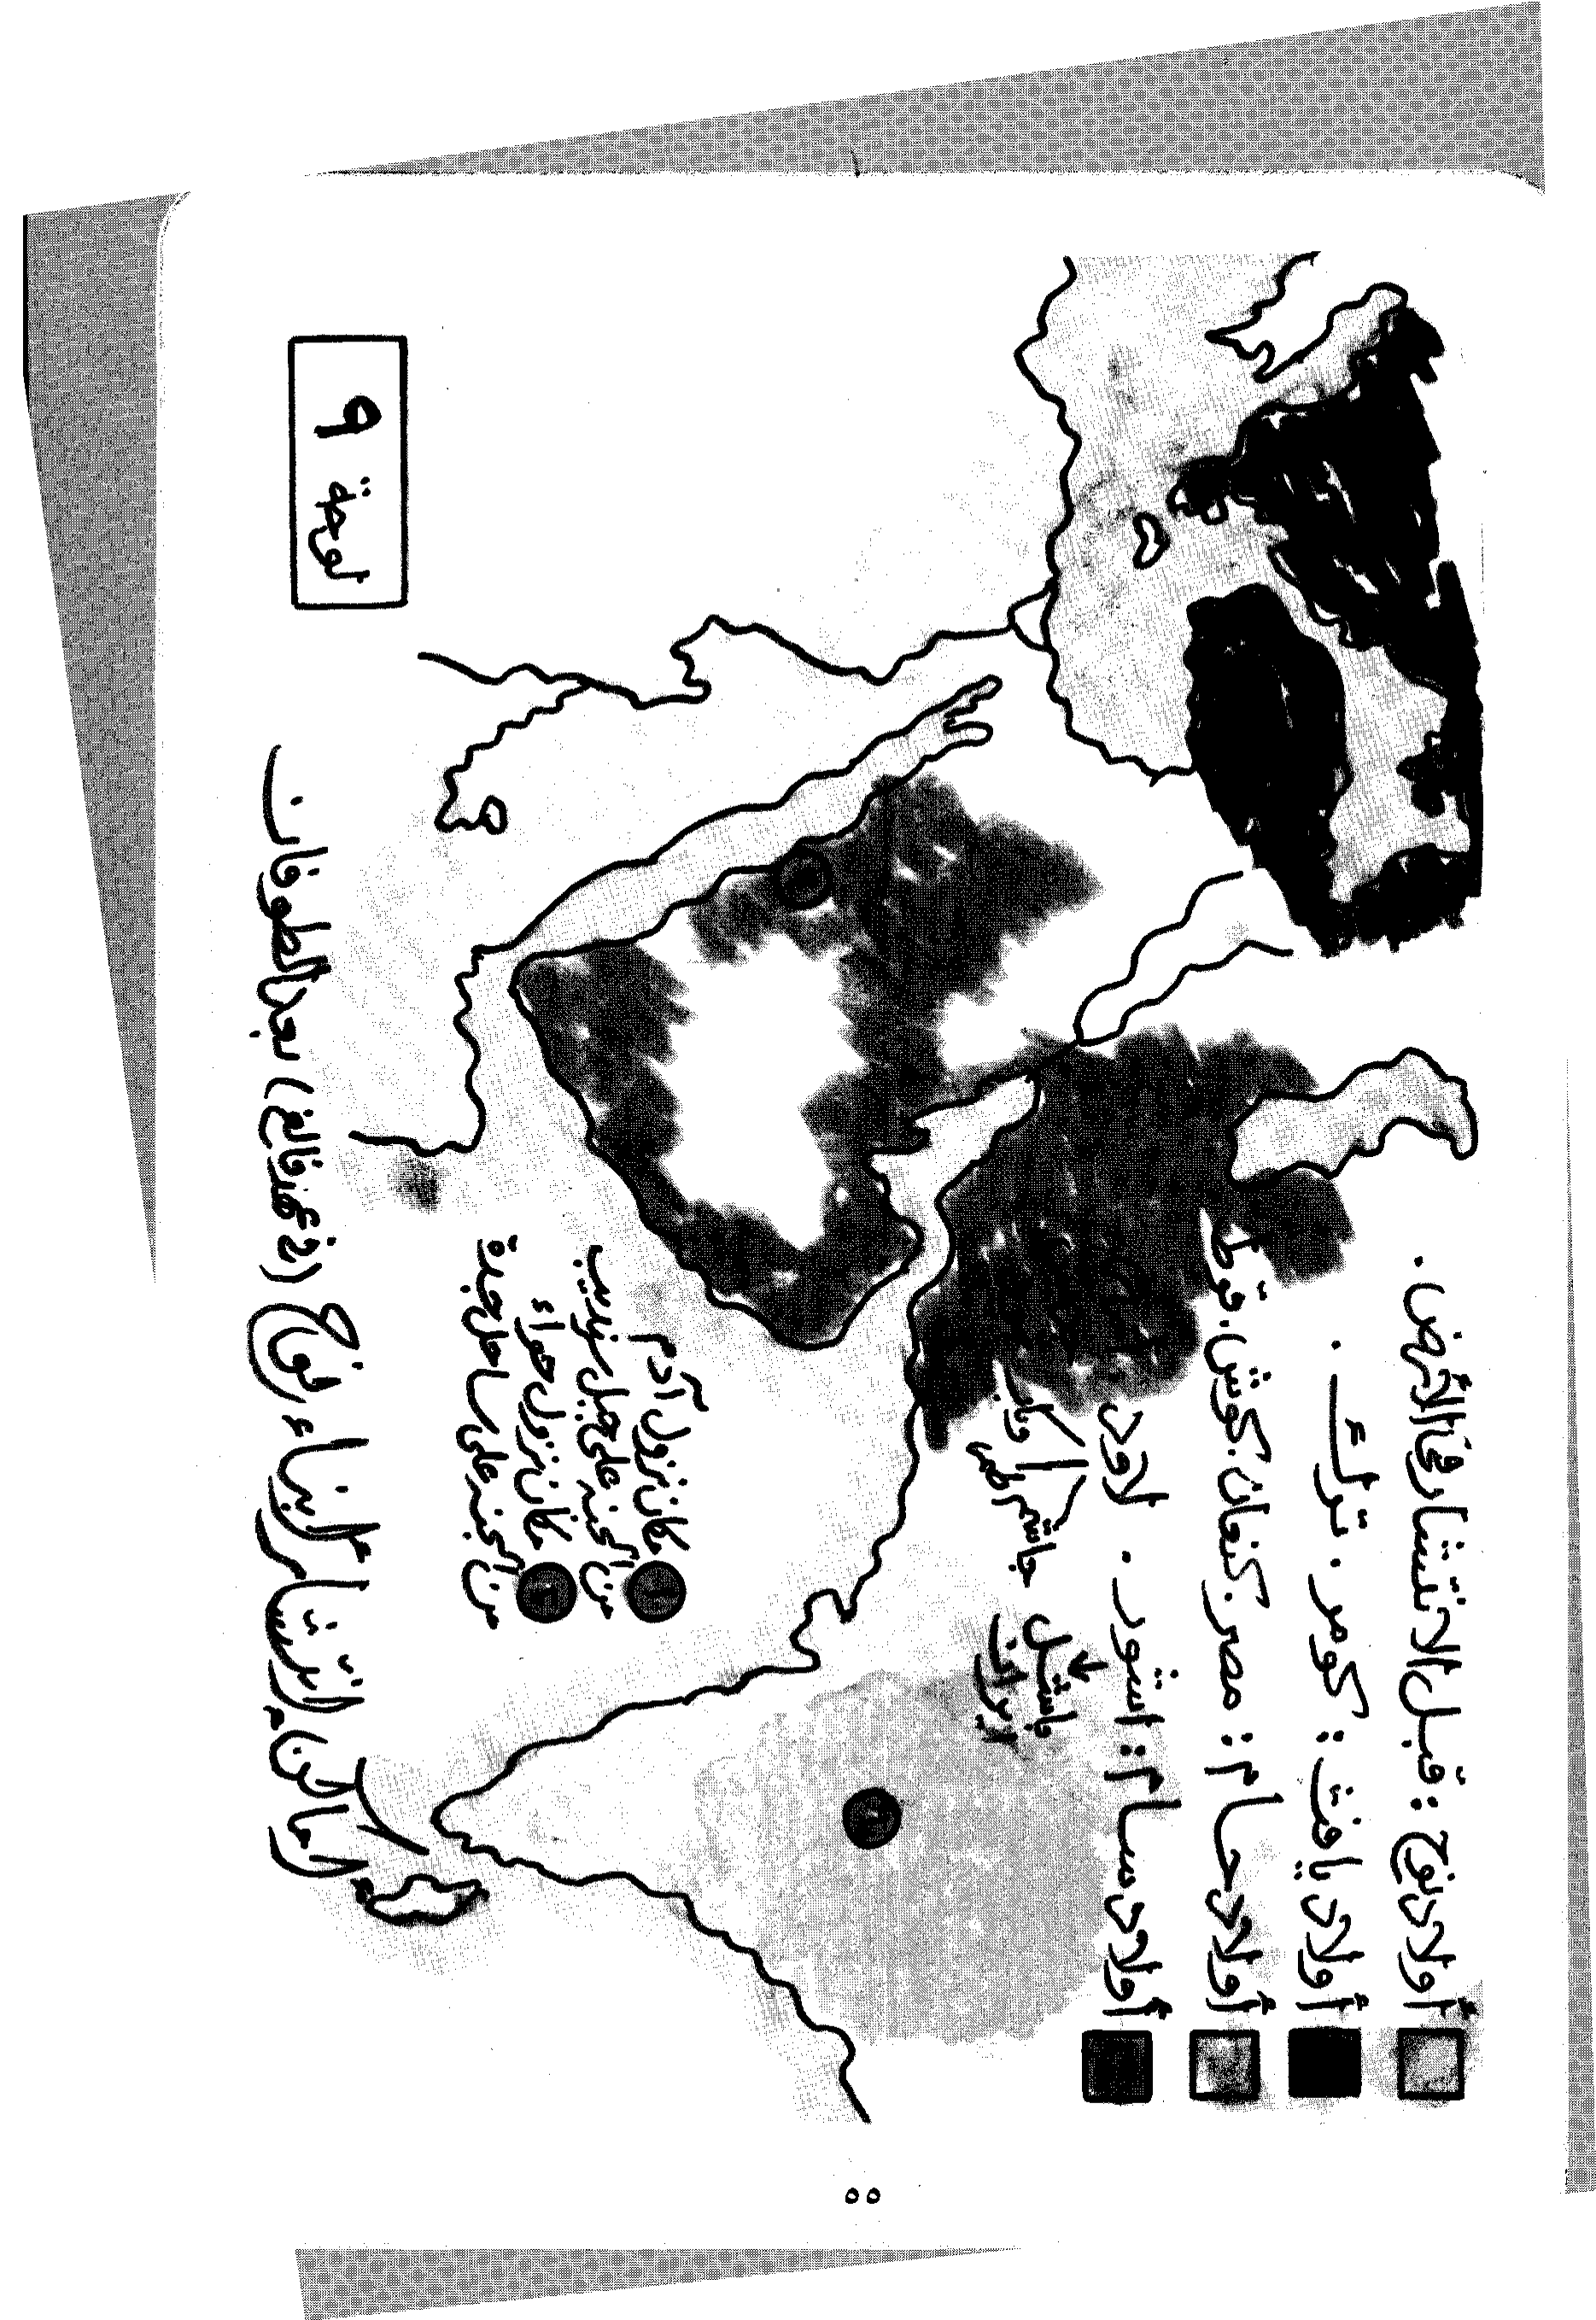 لوحة ٩
أولاد نوح : قبل الانتشار في الأرض .
أولاد يافث : كومر . ترك .
أولاد حام : مصر . كنعان . كوش . قوط
أولاد سام : اشور . لاود
باشل
ايران
جاشم
١ مكان نزول آدم
من الجنة على جبل سرنديب
٢ مكان نزول حواء
من الجنة على ساحل جدة
أماكن انتشار أبناء نوح (دغمائح) بعد الطوفان
٥٥